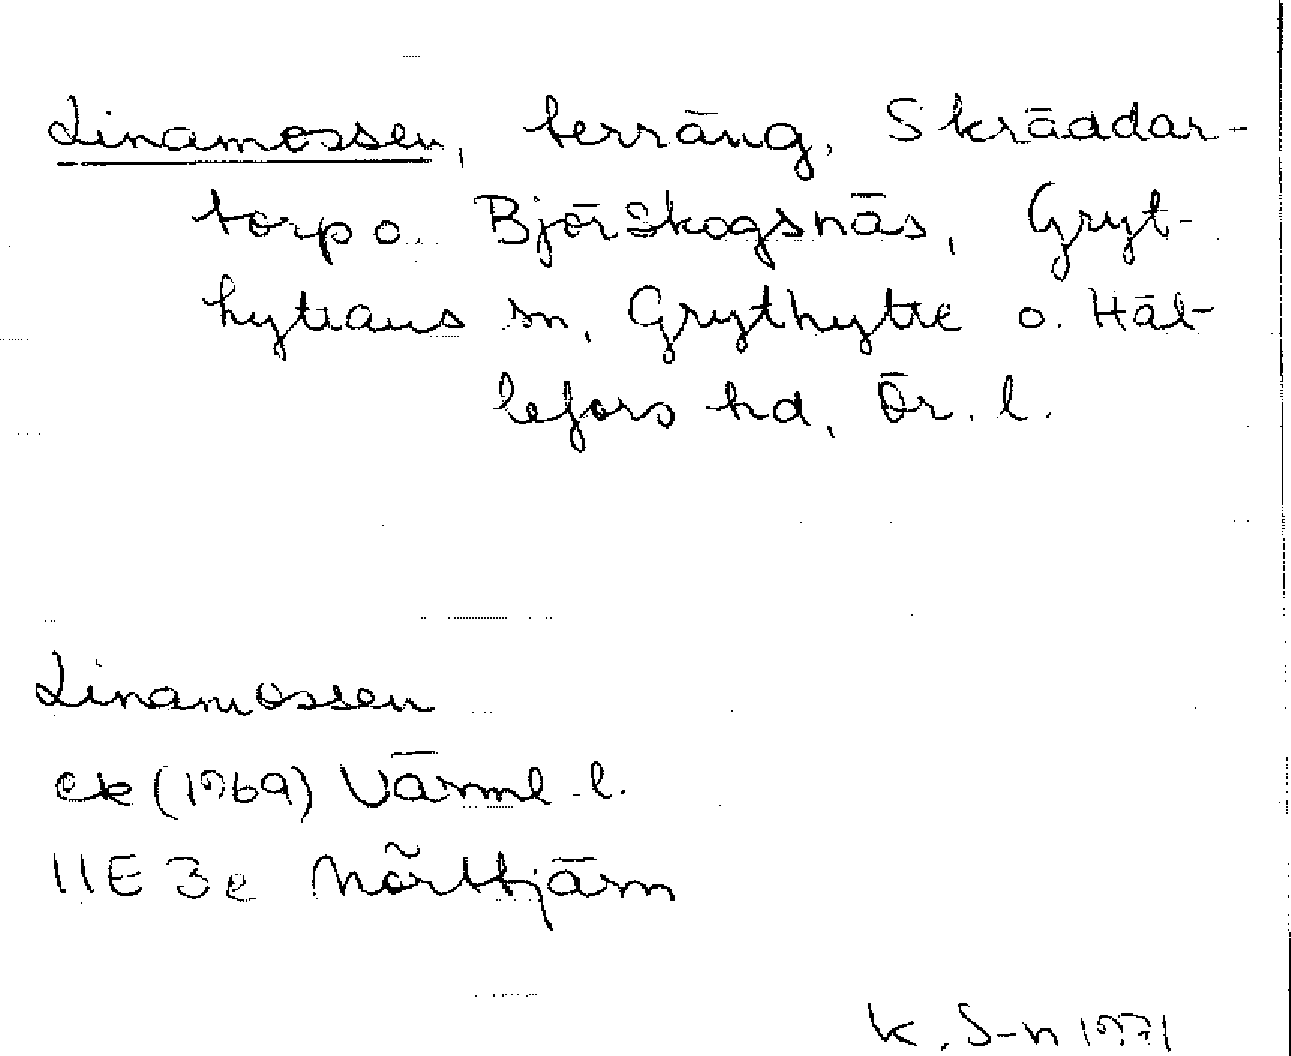 Linamossen, terräng, Skräddar-
torp o. Björskogsnäs, Gryt-
hyttans sn, Grythytte o. Häl-
lefors hd, Ör. l.
Linamossen
ek (1969) Värml. l.
11E 3e Mörttjärn
K. S-n 1971